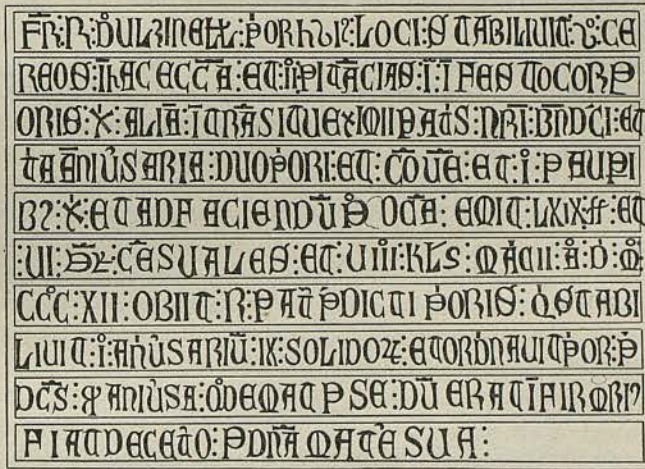 FR̄:R:DULZINELL:PORhuIꝰ:LOCI:STABILIUIT:II:CE
REOS:ĪhAC ECCA:ET:II:PITĀCIAS:Ī:ĪFESTOCORP
ORIS:X:ALIĀ:ĪTRĀSITUEXIMIIPATS:NRĪ:BNDCI:ET
TA ĀNIUSARIA:DUOPORI:ET:CŌUE:ET:I:PAUPI
Bꝰ:X:ET ADF ACIENDŪ P̄OCTA:EMIT:LXIX:ff:ET
:UI:D:CĒSUALES:ET:UIIII:KLS:MACII:A:D:M
CCC:XII:OBIIT:R:PAT̄ PDICTI PORIS:QSTABI
LIUIT:I:ANUSARIŪ:IX:SOLIDOꝜ:ETORDNAUITPOR:P
DCS:P ANIUSA:QDEMAT P SE:DŪ ERATĪFIRMRIꝰ
FIATDECETO:PDNA MATE SUA: